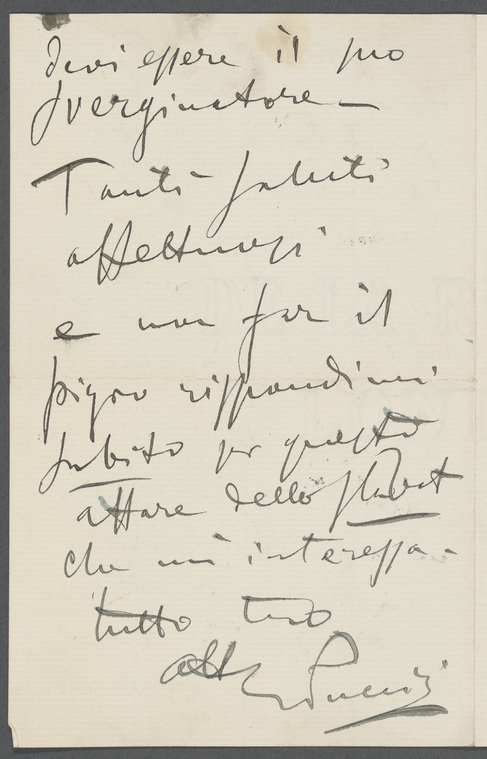 devi essere il suo
sverginatore –
Tanti saluti
affettuosi
e non far il
pigro rispondimi
subito per questo
affare dello Stabat
che mi interessa –
tutto tuo
aff GPuccini